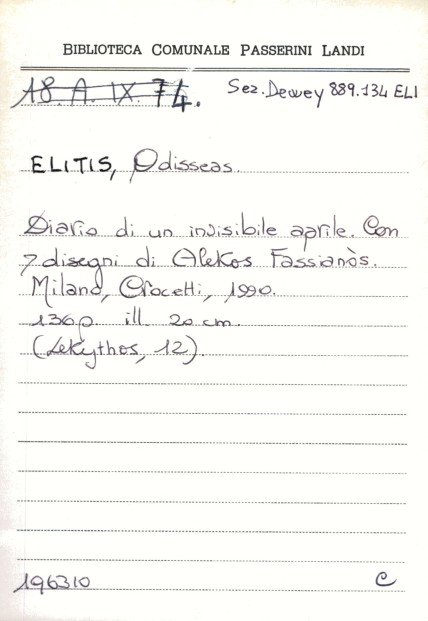 BIBLIOTECA COMUNALE PASSERINI LANDI
18.A.IX.74. Sez. Dewey 889.134 ELI
ELITIS, Odisseas.
Diario di un invisibile aprile. Con
7 disegni di Alekos Fassianòs.
Milano, Crocetti, 1990.
136p. ill. 20 cm.
(Lekythos, 12).
196310 C